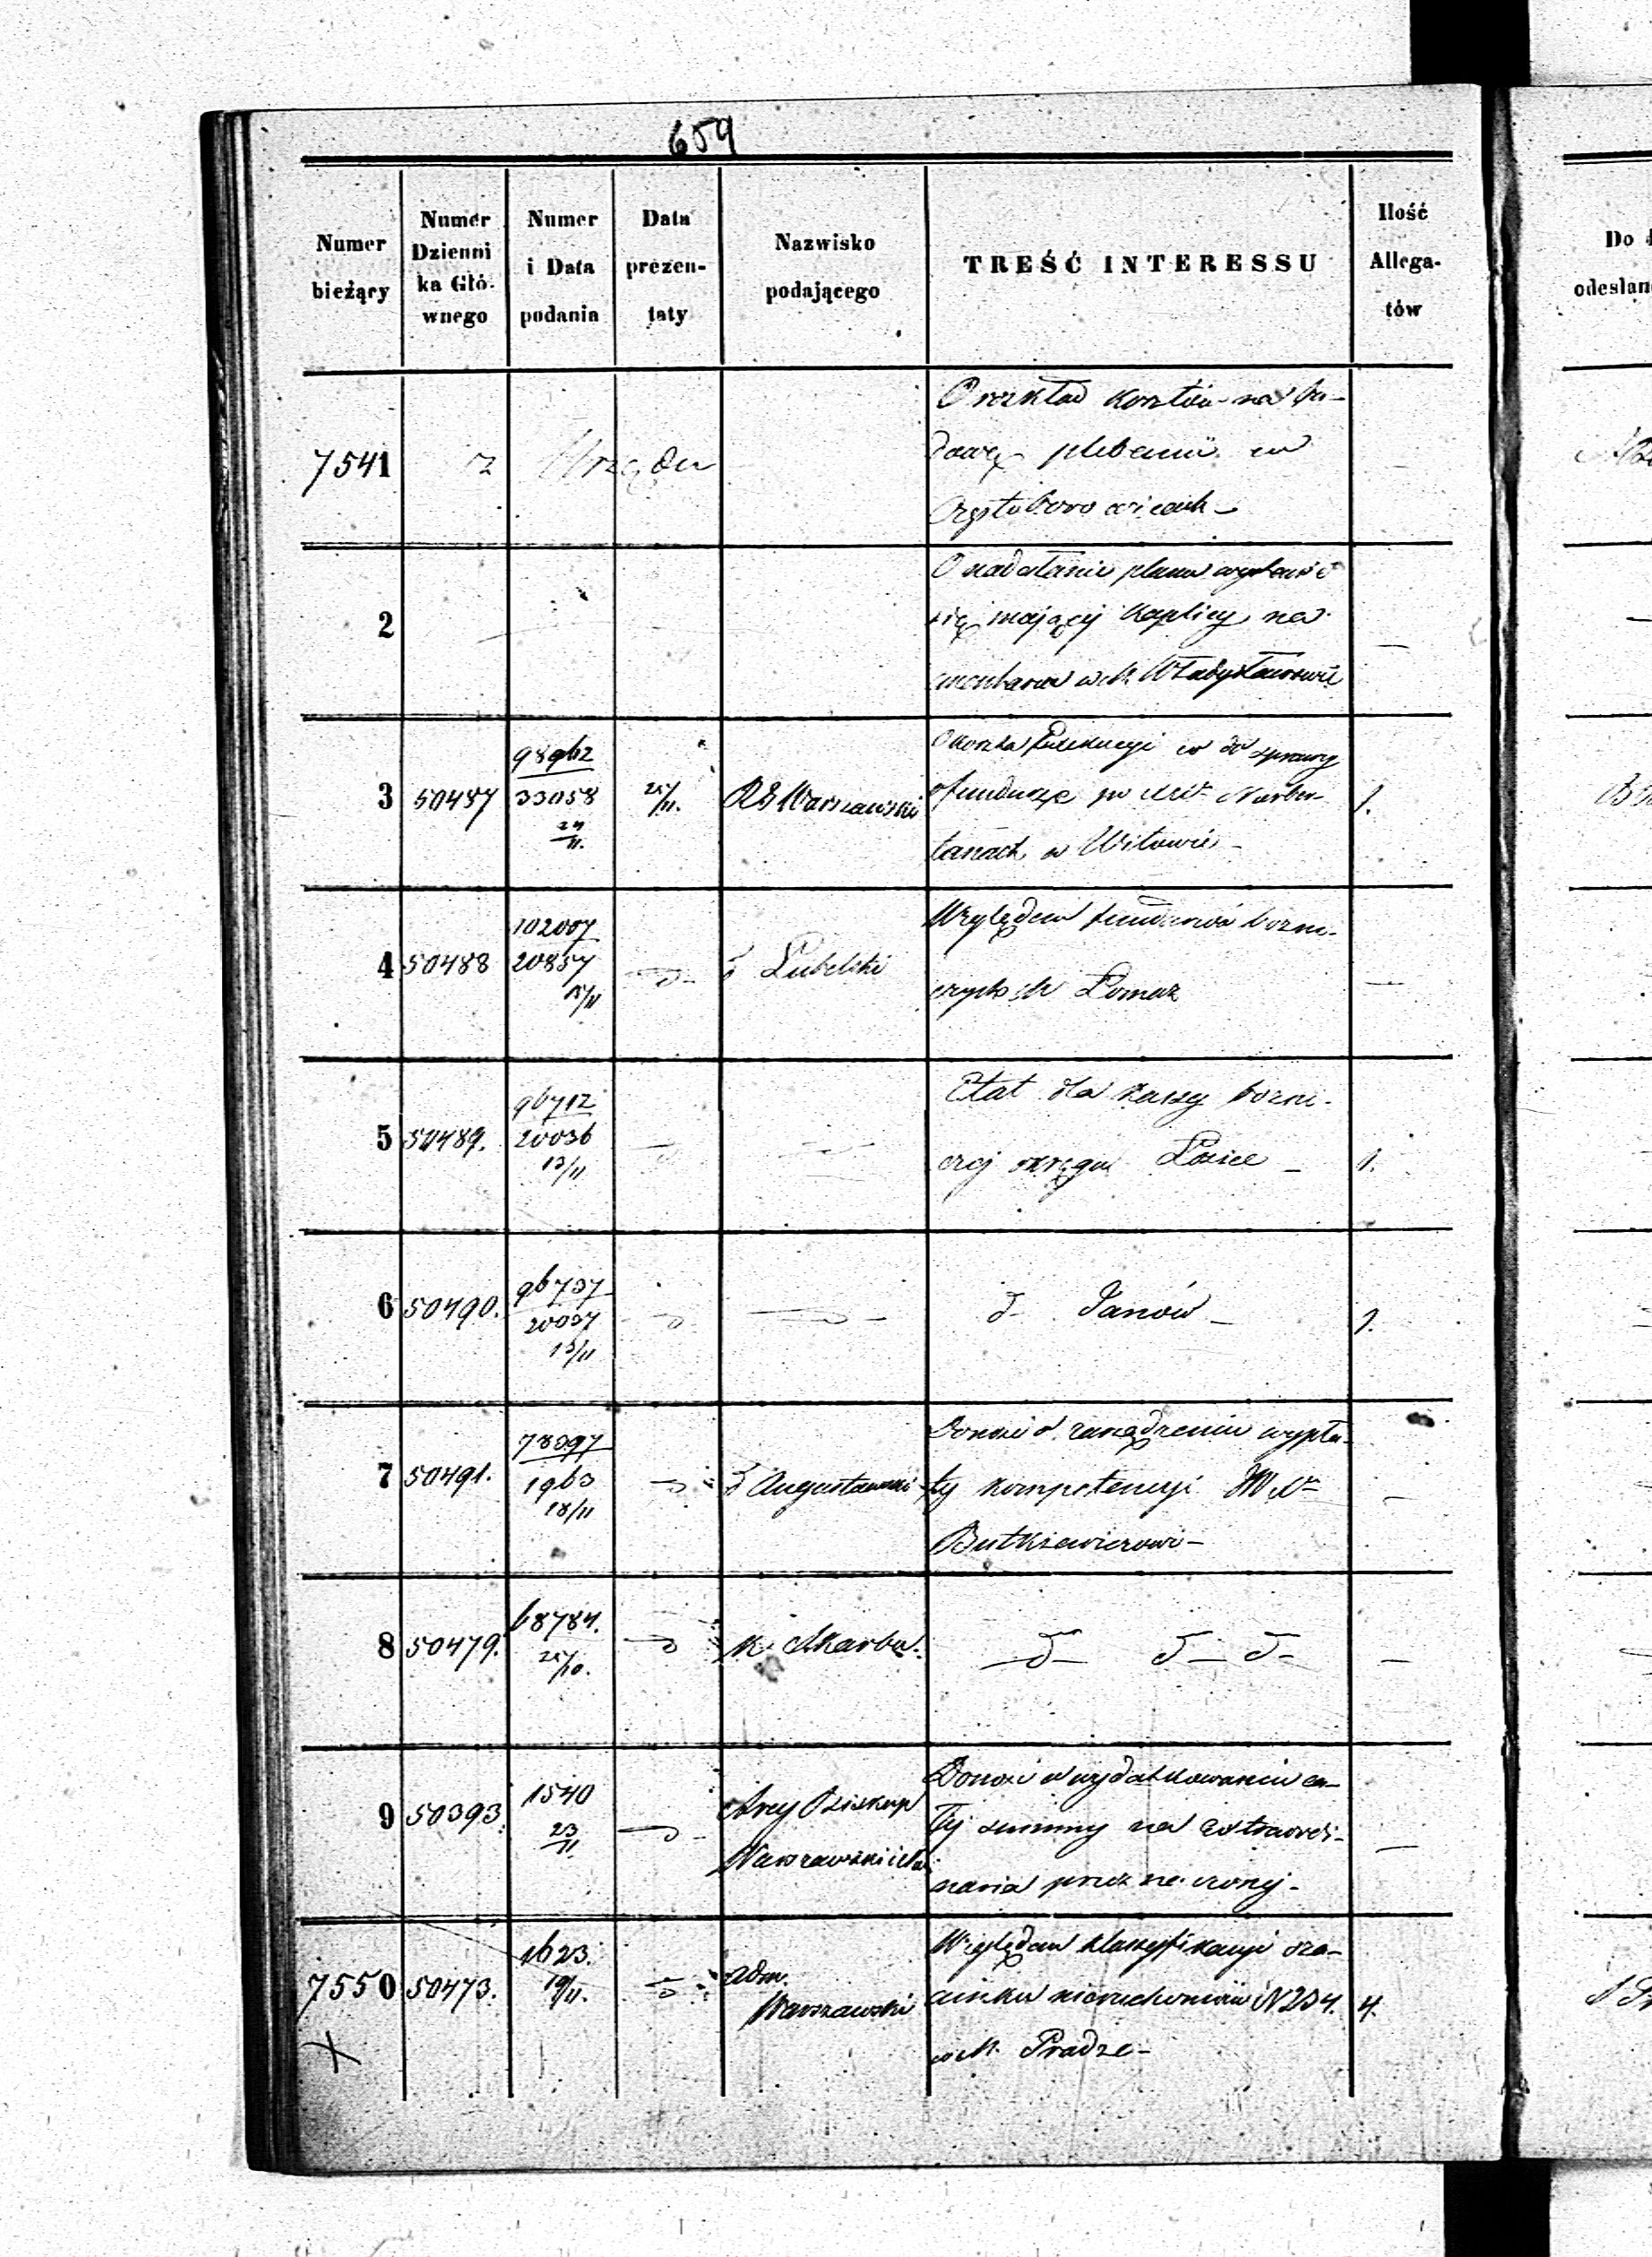 659
Numer bieżący
Numer Dzienni ka Głó- wnego
Numer i Data podania
Data prezen- taty
Nazwisko podającego
TREŚĆ INTERESSU
Ilość Allega- tów
Do
odesłan
7541 z Urzędu
O rozkład kosztów na bu-
dowę plebanii w
2
O nadesłanie planu
się mającej Kaplicy na
cmentarzu w M. Władysławowie
3 50487 98962
33058
24/11.
25/11.
RG Warszawski
w do sprawy
o fundusze po Norber-
tanach w Witowie -
1.
4 50488 102007
20857
15/11
d
d Lubelski
Względem funduszów bożni-
czych Łomaz
—
5 50489. 96712
20036
13/11
Etat dla kassy bożni-
czej okręgu Łosice -
1.
6 50490. 96737
20037
13/11
d
d
d- Janów -
1.
7 50491. 78397
1963
18/11
d
d Augustowski
Donosi o zarządzeniu wypła-
ty kompetencyi
Butkiewiczowi -
—
8 50479. 68784.
25/10.
d
K. Skarbu.
d- d- d-
—
9 50393. 1540
23/11.
d
Arcy Biskup
Warszawski
Donosi o wydatkowaniu ca-
łej summy na extraordi-
naria przeznaczonej -
—
7550 50473. 1623.
19/11.
d
Adm.
Warszawski
Względem klassyfikacyi sza-
cunku nieruchomości N 234.
w M. Pradze -
4.
X